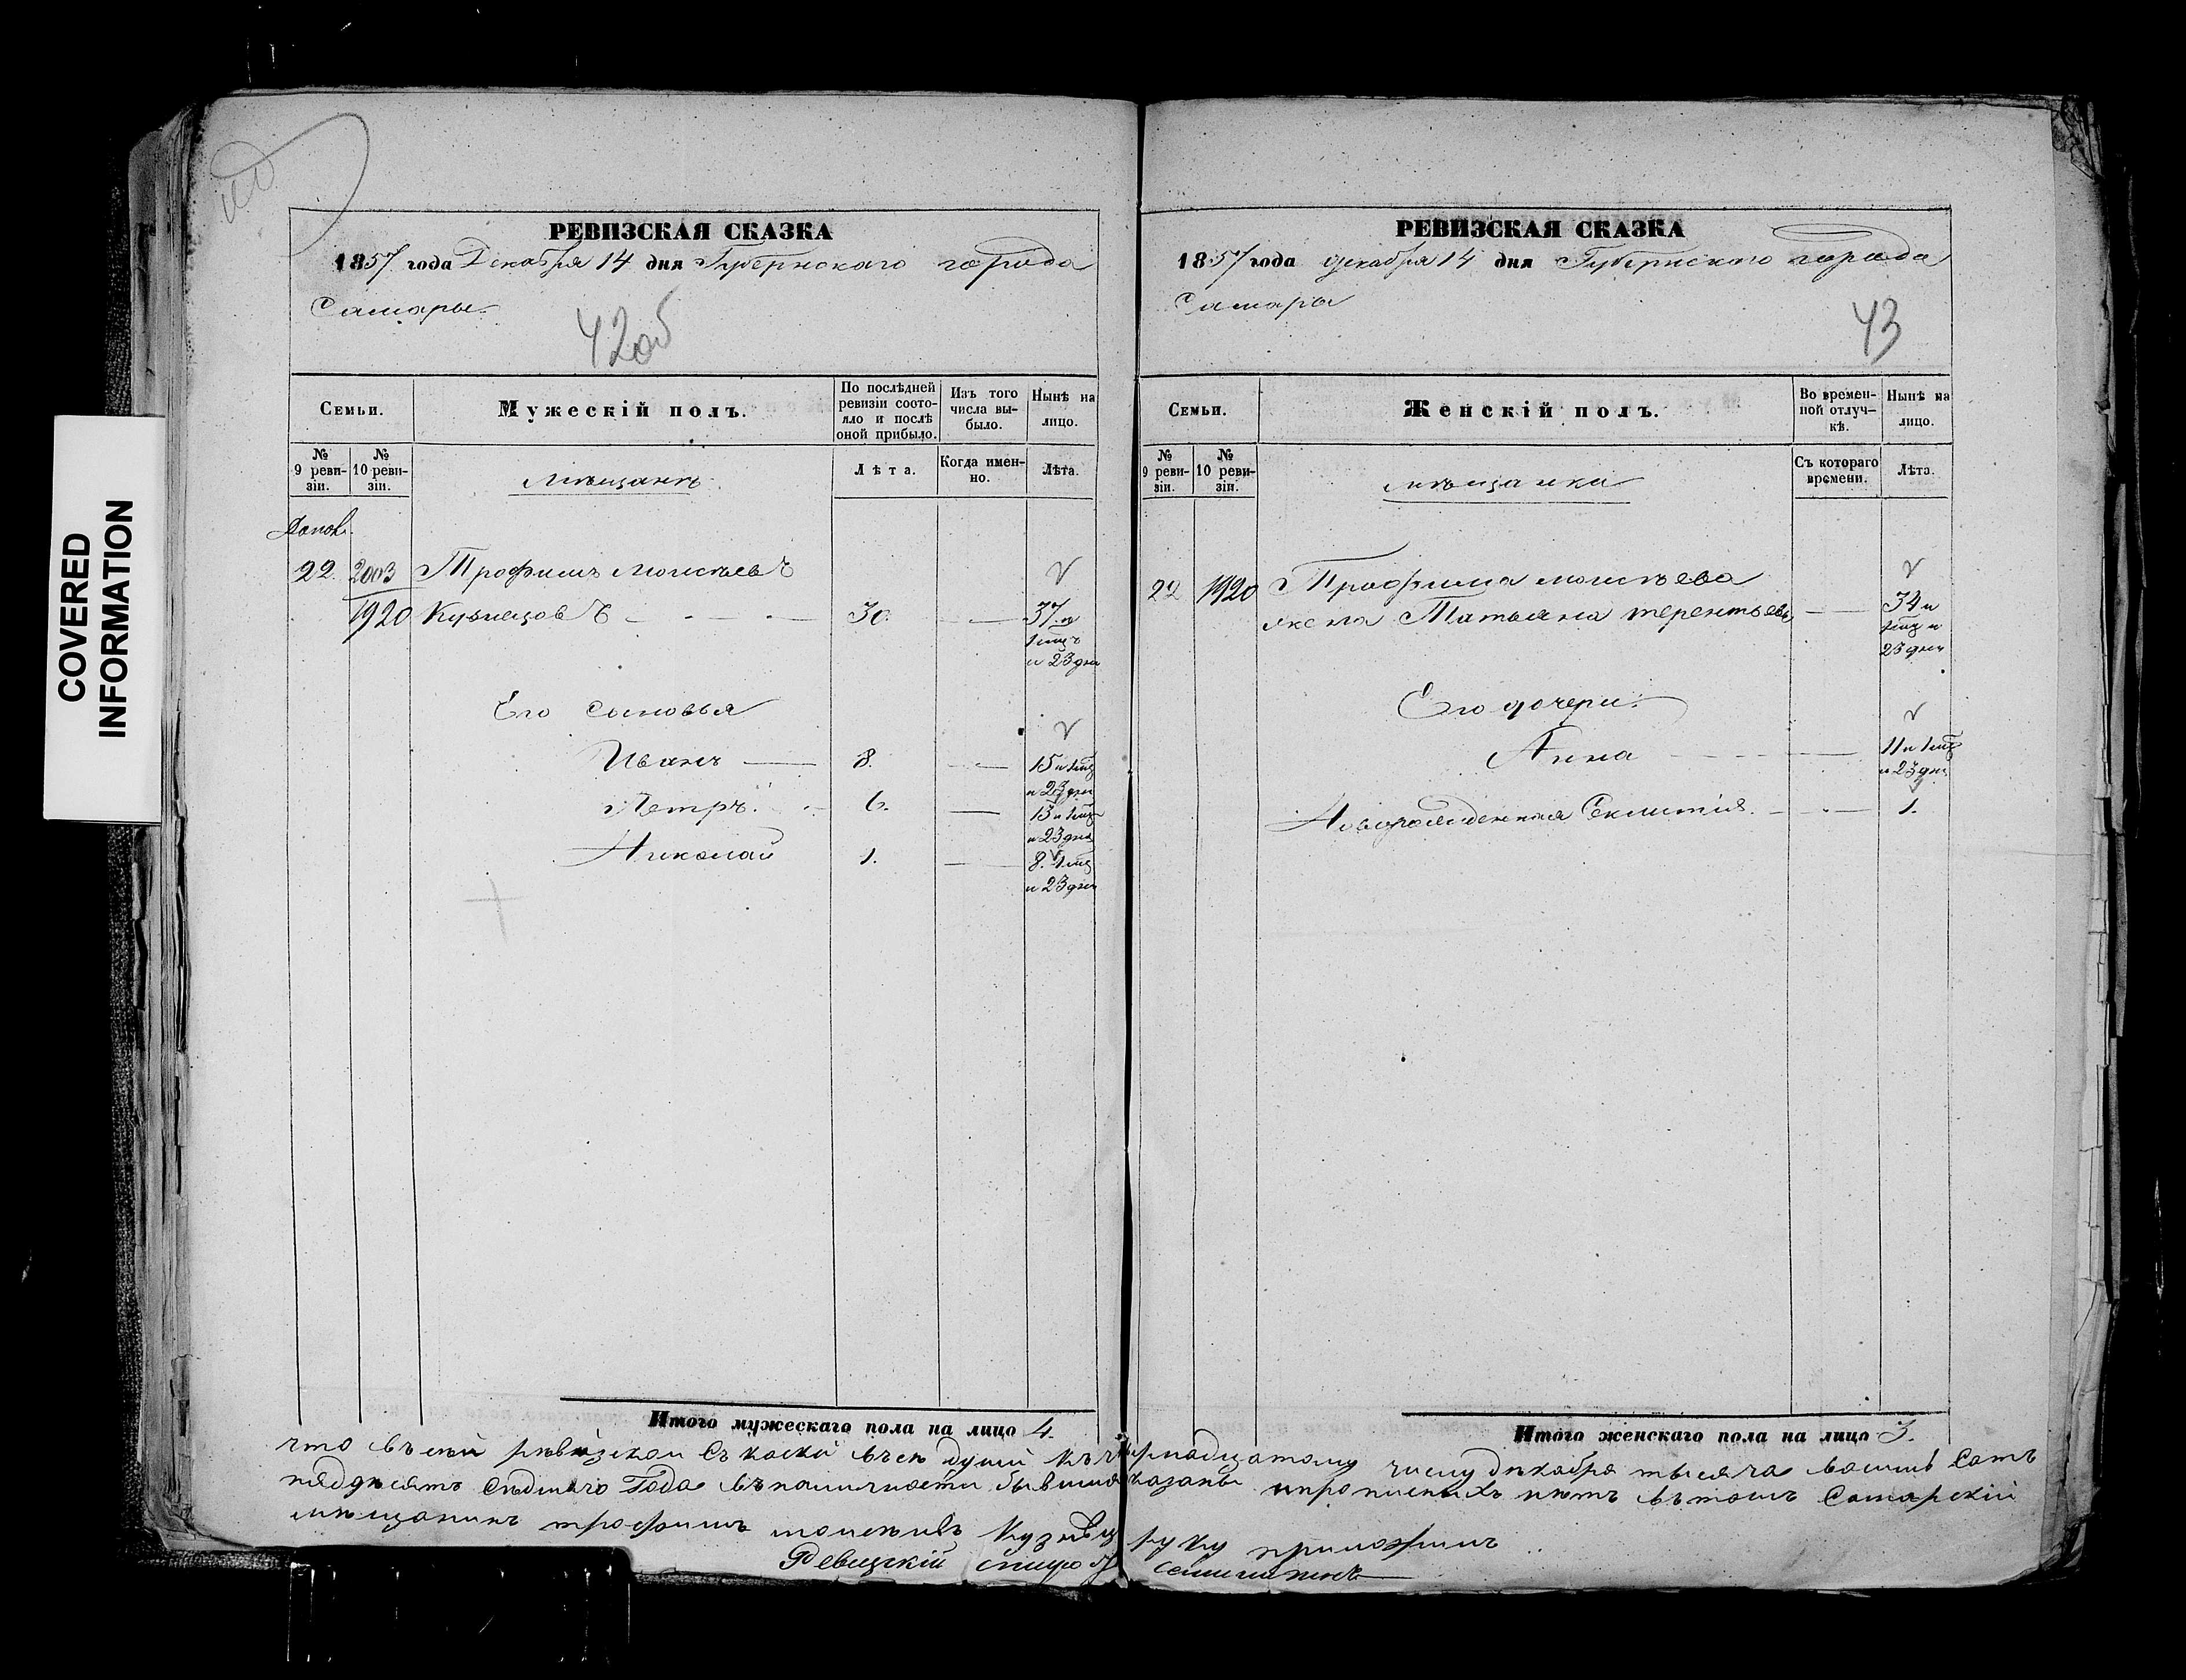 COVERED
INFORMATION
РЕВИЗСКАЯ СКАЗКА
1857 года Декабря 14 дня Губернскаго города
Самары.
42об
Семьи.
Мужескій полъ.
По послѣдней ревизіи состояло и послѣ оной прибыло.
Изъ того числа выбыло.
Нынѣ на лицо.
№ 9 ревизіи.
№ 10 ревизіи.
Мѣщанъ
Лѣта.
Когда именно.
Лѣта.
22. 2003 Трофимъ Моисѣевъ
1920 Кузнецовъ 30. 37 и
1 мцъ
и 23 дня
Его сыновья
Иванъ 8. 15 и 1 мц
и 23 дня
Петръ. 6. 13 и 1 мц
и 23 дня
Николай 1. 8. 1 мц
и 23 дня
Итого мужескаго пола на лицо 4.
РЕВИЗСКАЯ СКАЗКА
1857 года декабря 14 дня Губернскаго города
Самары
43
Семьи.
Женскій полъ.
Во временной отлучкѣ.
Нынѣ на лицо.
№ 9 ревизіи.
№ 10 ревизіи.
мѣщанка
Съ котораго времени.
Лѣта.
22 1920 Трофима моисѣева
жена Татьяна терентьева 34 и
1 мц и
23 дня
Его дочери.
Анна 11 и 1 мц
и 23 дня
Новорожденная 1.
Итого женскаго пола на лицо 3.
что въ сей рѣвизской съ каски въсе души къ четырнадцатому числу дѣкобря тысяча восимь сотъ
пяддѣсятъ сѣдмаго Года въ наличности бывшия показаны и прописныхъ нѣтъ въ томъ Самарскій
мѣщанинъ трофимъ моисѣивъ Кузнѣц руку приложилъ